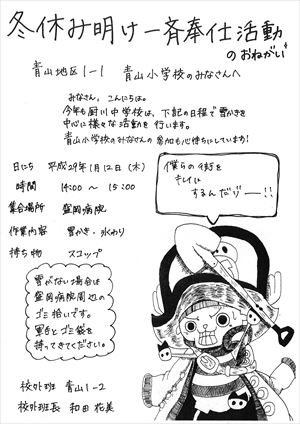 冬休み明け一斉奉仕活動
のおねがい
青山地区1-1 青山小学校のみなさんへ
みなさん、こんにちは。
今年も厨川中学校は、下記の日程で雪かきを
中心に様々な活動を行います。
青山小学校のみなさんの参加も心待ちにしています!
日にち 平成29年1月12日(木)
時間 14:00 ~ 15:00
集合場所 盛岡病院
作業内容 雪かき・氷わり
持ち物 スコップ
僕らの街を
キレイに
するんだい――!!
雪がない場合は
盛岡病院周辺の
ゴミ拾いです。
軍手とゴミ袋を
持ってきてください。
校外班 青山1-2
校外班長 和田 花美